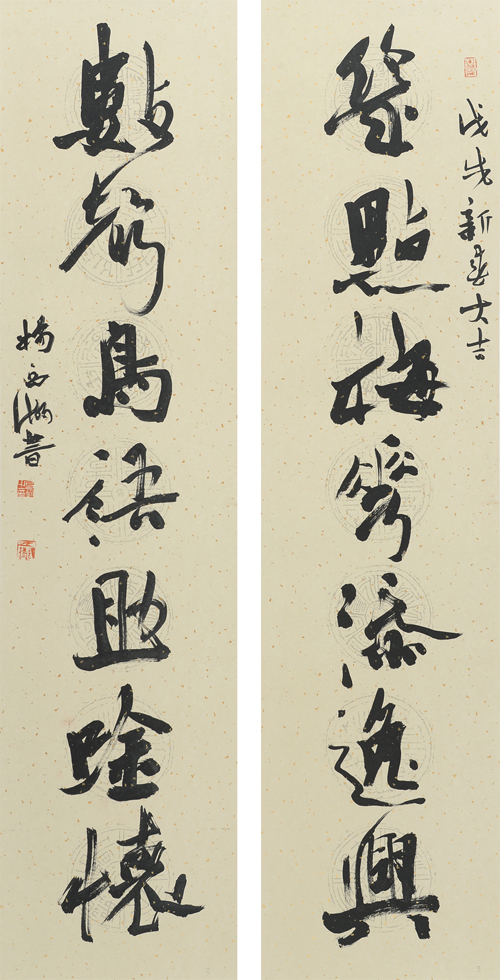 戊戌新春大吉
幾點梅花添逸興
數聲鳥語助唫懷
楊西湖書